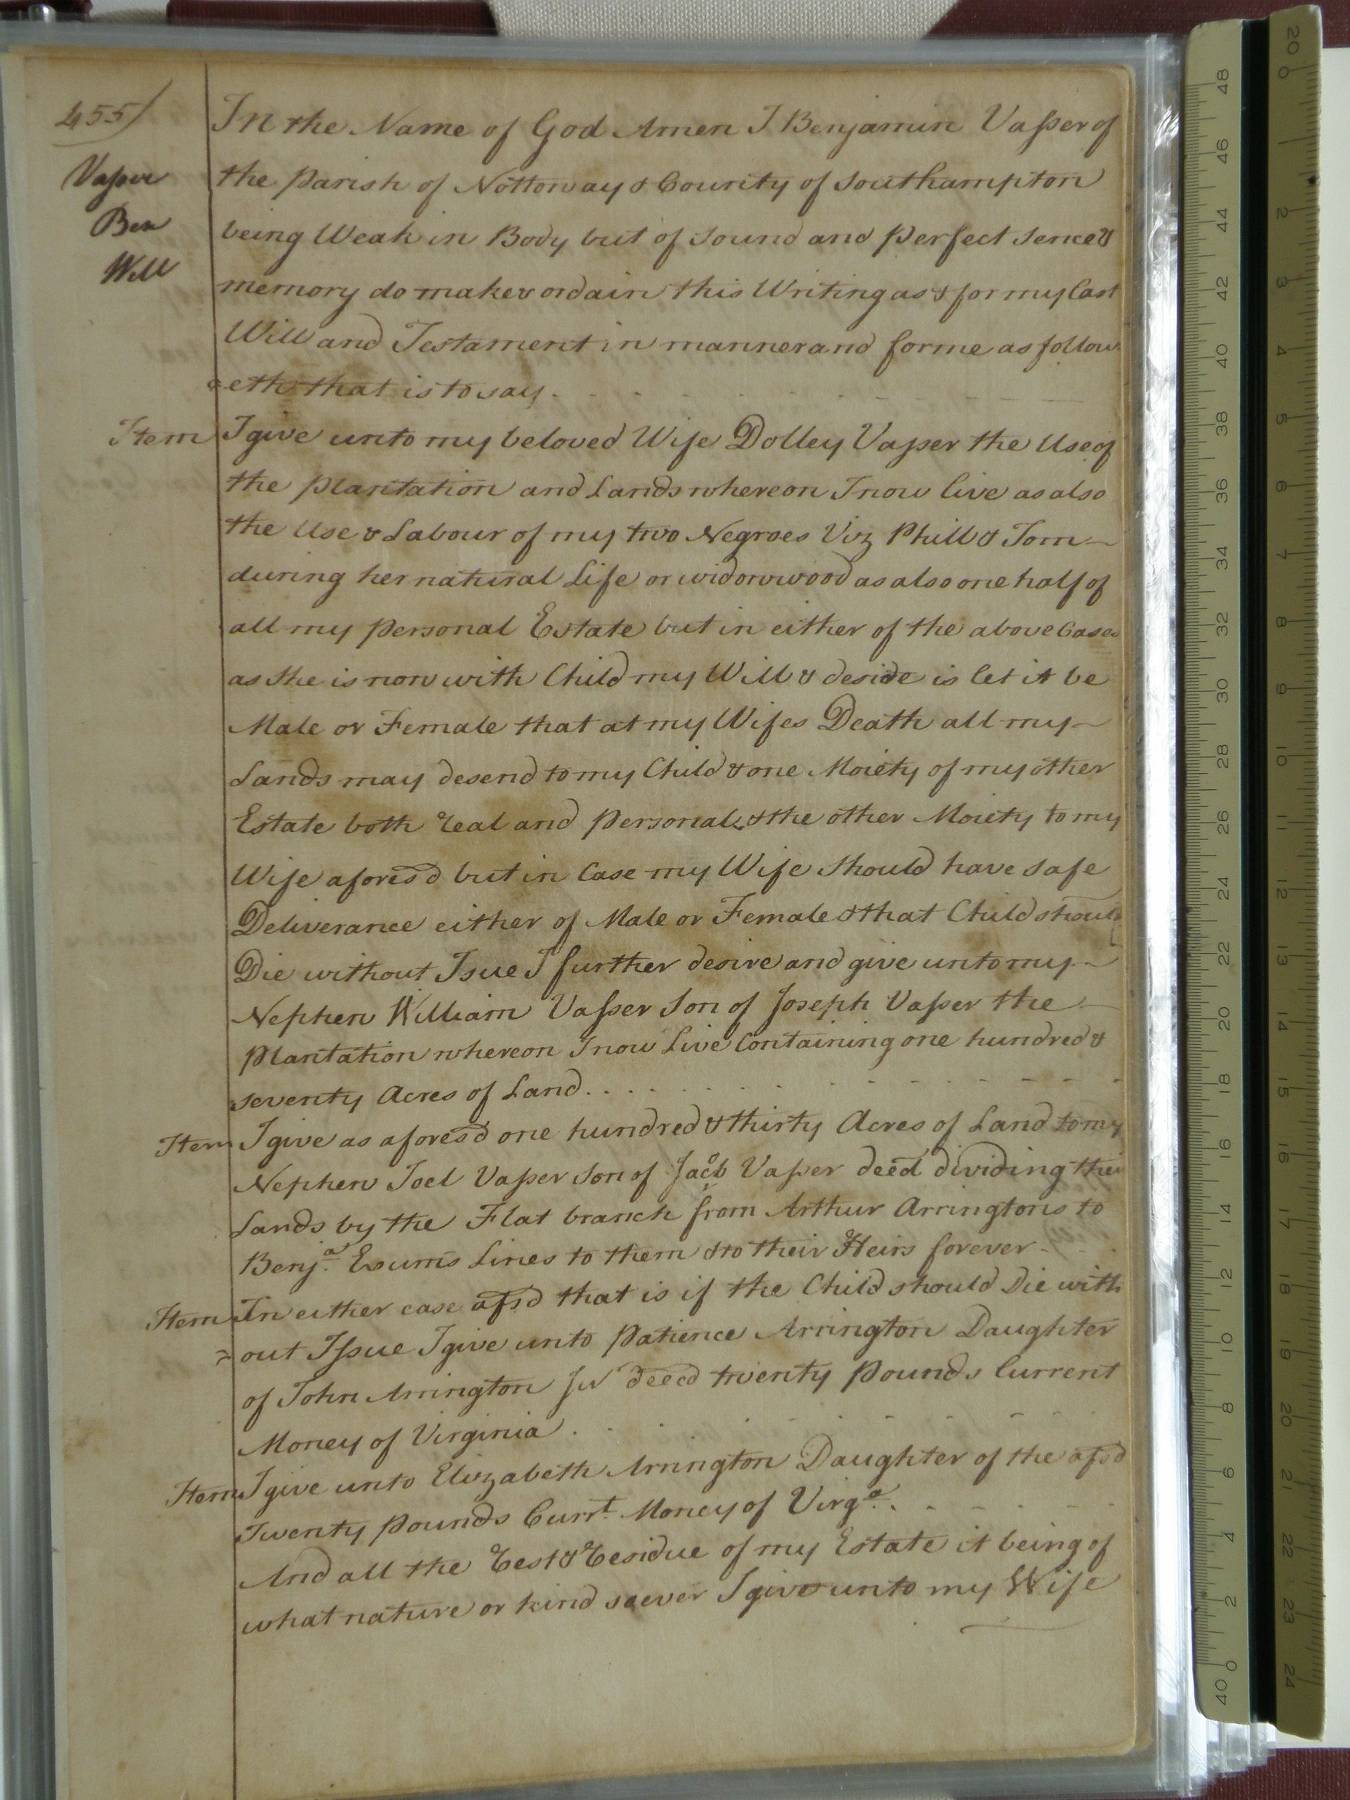 455/
Vasser
Ben
Will
In the Name of God Amen I Benjamin Vasser of
the Parish of Nottoway & County of Southampton
being Weak in Body but of sound and perfect sence &
memory do make & ordain this Writing as & for my Last
Will and Testament in manner and forme as follow
=eth that is to say.
Item I give unto my beloved Wife Dolley Vasser the Use of
the Plantation and Lands whereon I now live as also
the Use & Labour of my two Negroes Viz Phill & Tom
during her natural Life or widowwood as also one half of
all my personal Estate but in either of the above Cases
as She is now with Child my Will & deside is let it be
Male or Female that at my Wifes Death all my
Lands may desend to my Child & one Moiety of my other
Estate both real and personal, & the other Moiety to my
Wife afores'd but in Case my Wife should have safe
Deliverance either of Male or Female & that Child should
Die without Isue I further desire and give unto my
Nephew William Vasser Son of Joseph Vasser the
Plantation whereon I now Live Containing one hundred &
seventy Acres of Land
Item I give as afores'd one hundred & thirty Acres of Land to my
Nephew Joel Vasser Son of Jacob Vasser deed dividing their
Lands by the Flat branch from Arthur Arringtons to
Benja. Exums Lines to them & to their Heirs forever
Item In either case afsd that is if the Child should Die with
= out Issue I give unto Patience Arrington Daughter
of John Arrington Jur deeed twenty Pounds Current
Money of Virginia
Item I give unto Elizabeth Arrington Daughter of the afsd
Twenty pounds Currt. Money of Virga.
And all the rest & residue of my Estate it being of
what nature or kind soever I give unto my Wife
48 46 44 42 40 38 36 34 32 30 28 26 24 22 20 18 16 14 12 10 8 6 4 2 0
40
20
0 1 2 3 4 5 6 7 8 9 10 11 12 13 14 15 16 17 18 19 20 21 22 23 24